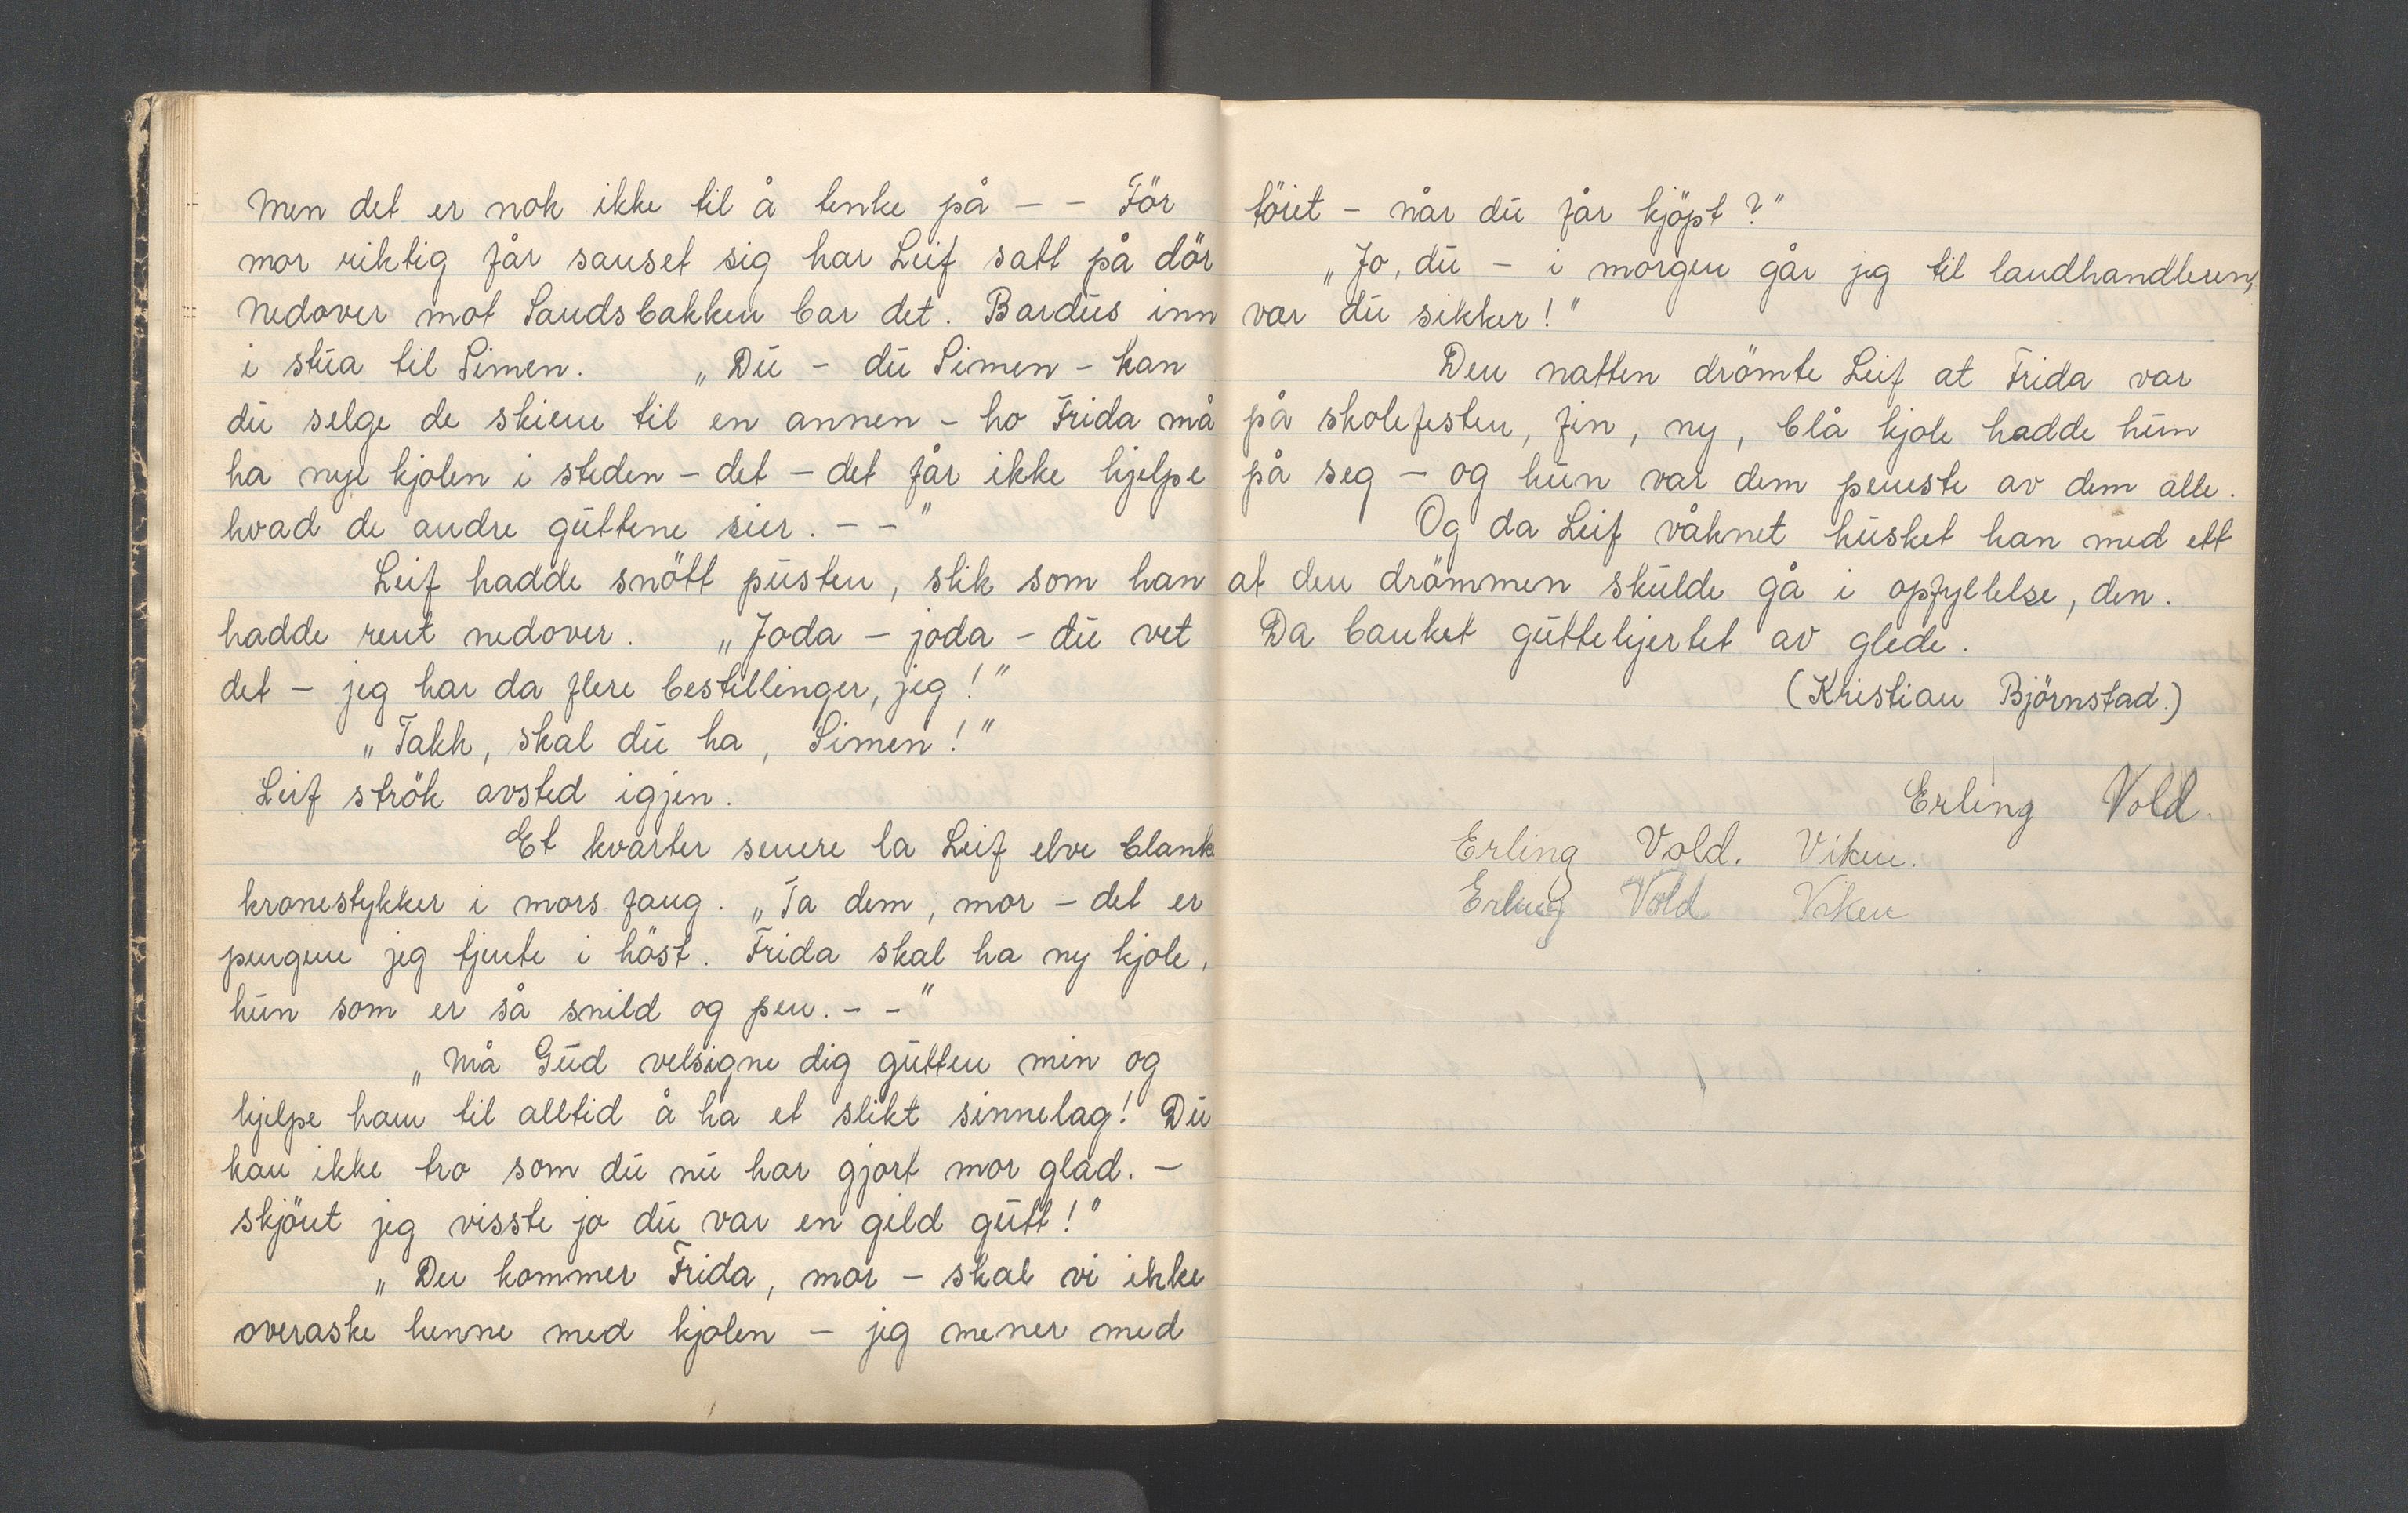 Men det er nok ikke til å tenke på – –För
mor riktig får sauset sig har Leif satt på dör
Nedover mot Sandsbakken bar det. Bardus inn
i stua til Simen. „Du – du Simen – kan
du selge de skiene til en annen – ho Frida må
ha nye kjolen i steden – det – det får ikke hjelpe
hvad de andre guttene sier. – –"
Leif hadde snött pusten, slik som han
hadde rent nedover. „Joda – joda – du vet
det – jeg har da flere bestillinger, jeg!"
„Takk, skal du ha, Simen!"
Leif strök avsted igjen.
Et kvarter senere la Leif elve blank
kronestykker i mors fang. „Ta dem, mor – det er
pengene jeg tjente i höst. Frida skal ha ny kjole,
hun som er så snild og pen. – –"
„Må Gud velsigne dig gutten min og
hjelpe ham til alltid å ha et slikt sinnelag! Du
kan ikke tro som du nu har gjort mor glad. –
skjönt jeg visste jo du var en gild gutt!"
„Der kommer Frida, mor – skal vi ikke
overaske henne med kjolen – jeg mener med
töiet – når du får kjöpt?"
„Jo, du – i morgen går jeg til landhandleren,
vær du sikker!"
Den natten drömte Leif at Frida var
på skolefesten, fin, ny, blå kjole hadde hun
på seg – og hun var dem peneste av dem alle.
Og da Leif våknet husket han med ett
at den drömmen skulde gå i opfyllelse, den.
Da banket guttehjertet av glede.
(Kristian Björnstad.)
Erling Vold.
Erling Vold. Viken.
Erling Vold Viken